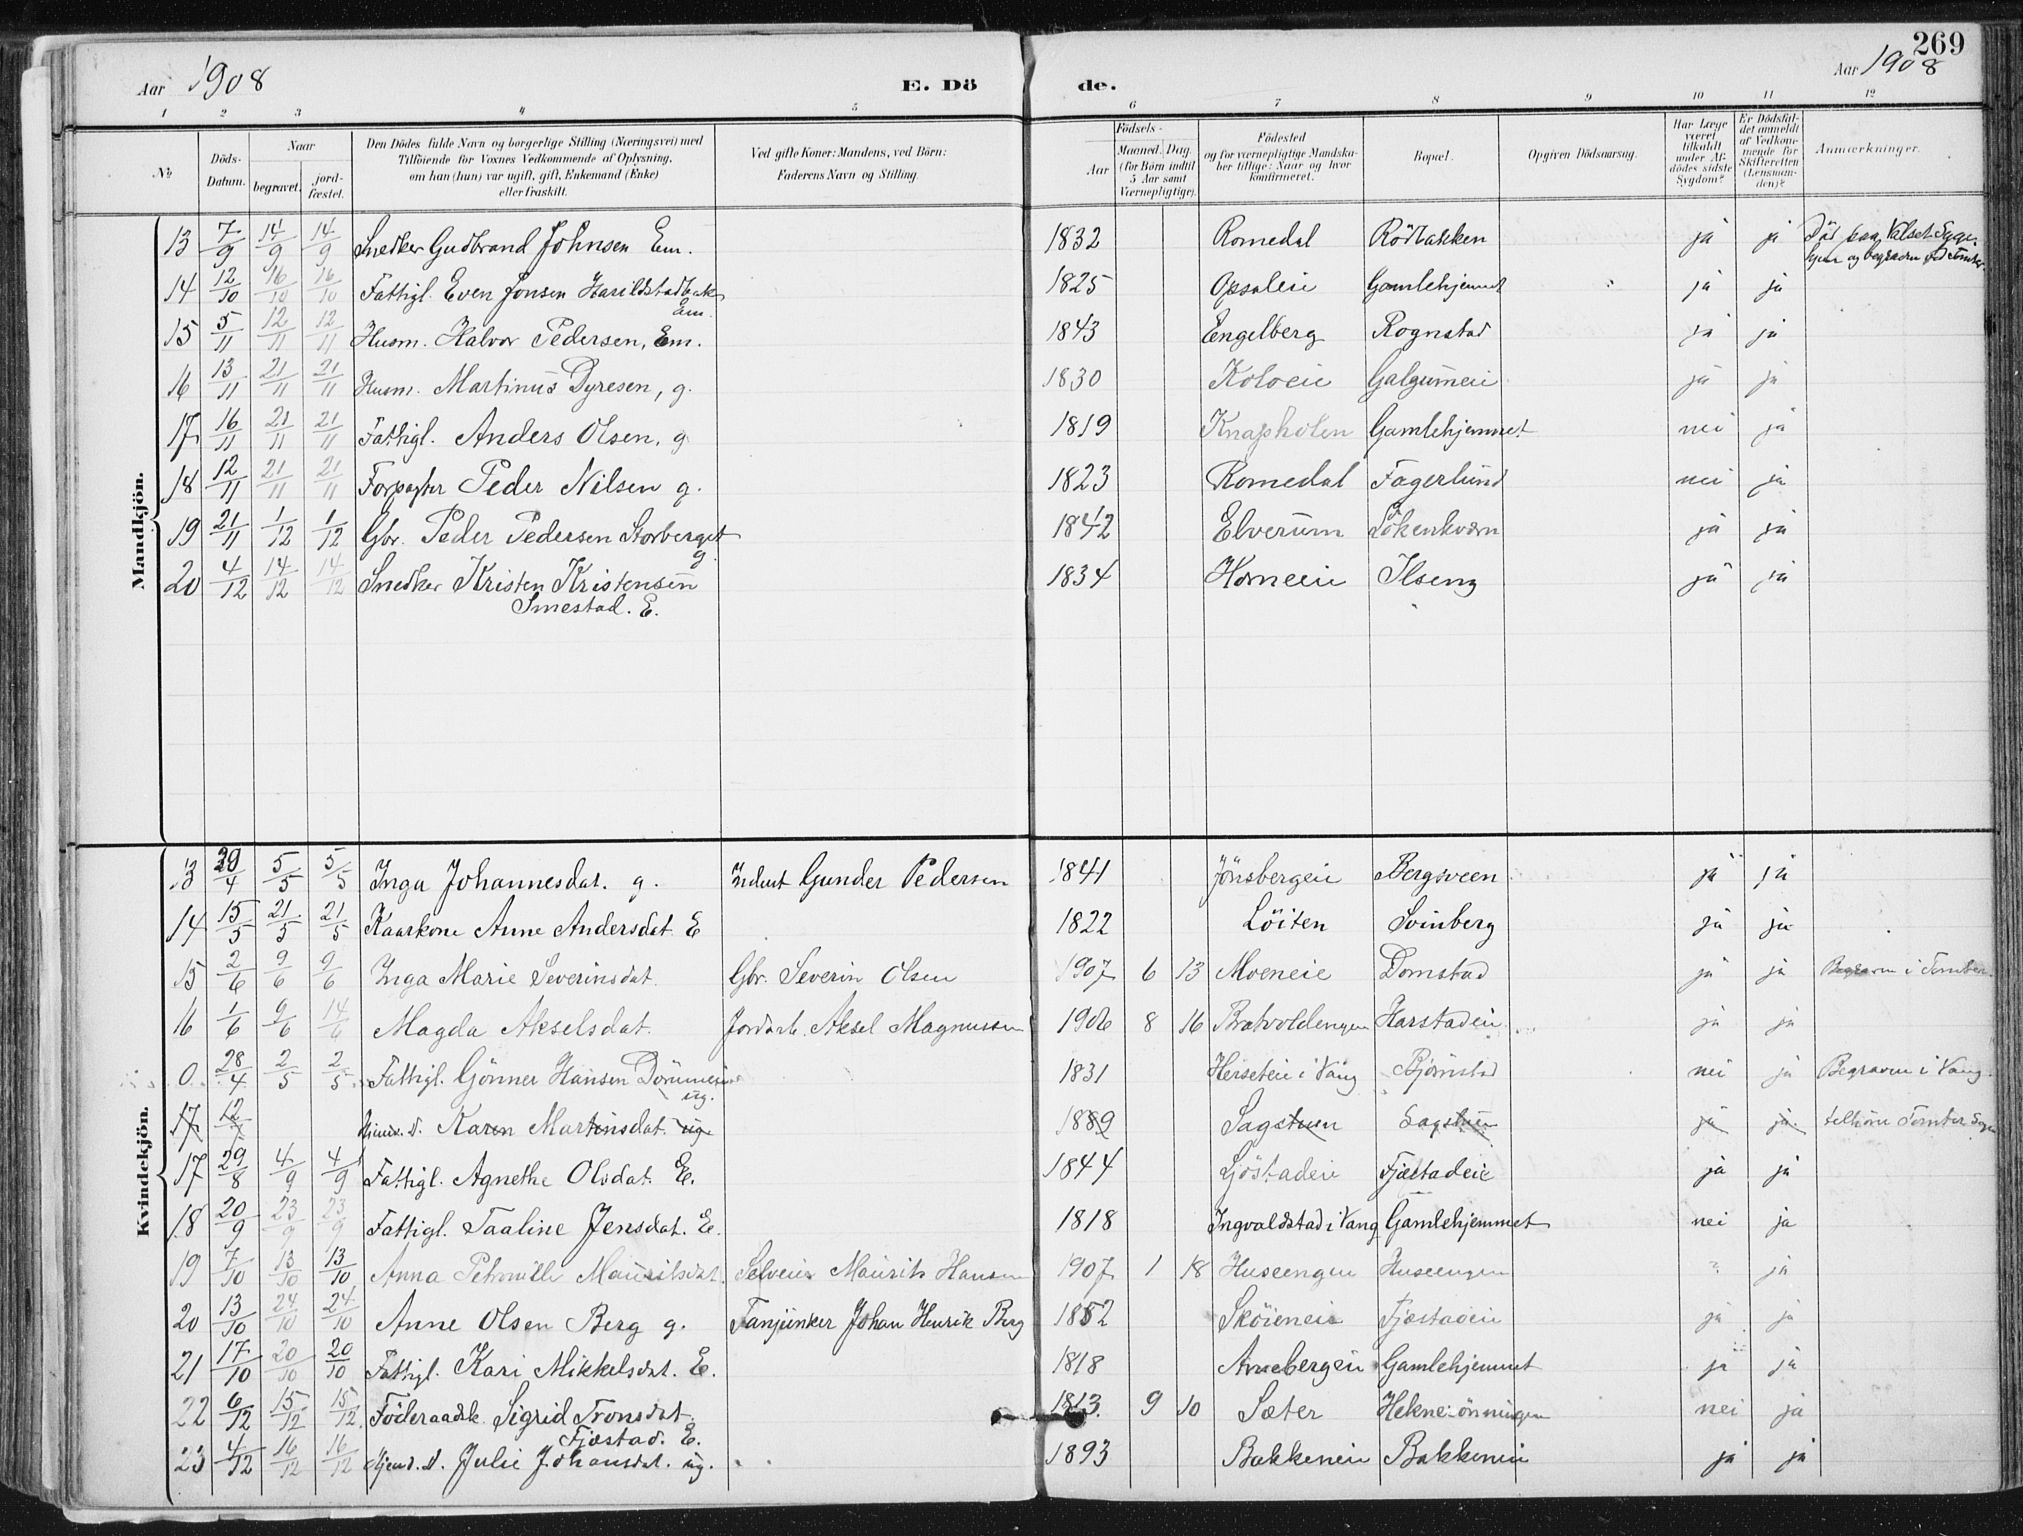 269
Aar 1908
E. Dö
de.
Aar 1908
1 2 3 4 5 6 7 8 9 10 11 12
№
Döds-Datum.
Naar
begravet.
jord-fæstet.
Den Dödes fulde Navn og borgerlige Stilling (Næringsvei) med
Tilföiende for Voxnes Vedkommende af Oplysning,
om han (hun) var ugift, gift, Enkemand (Enke)
eller fraskilt.
Ved gifte Koner: Mandens, ved Börn:
Faderens Navn og Stilling.
Födsels-
Aar
Maaned. Dag.
(for Börn indtil
5 Aar samt
Værnepligtige).
Födested
og for værnepligtige Mandska-
ber tillige: Naar og hvor
konfirmeret.
Bopæl.
Opgiven Dödsaarsag.
Har Læge
været
tilkaldt
under Af-
dödes sidste
Sygdom?
Er Dödsfal-
det anmeldt
af Vedkom-
mende for
Skifteretten
(Lensman-
den)?
Anmærkninger.
Mandkjön.
13 7/9 14/9 14/9 Snedker Gudbrand Johnsen Em. 1832 Romedal Rödbakken ja ja Död paa Valset Syge-
hjem og begraven ved Tomter
14 12/10 16/10 16/10 Fattigl. Even Jonsen Harildstadbak 1825 Opsaleie Gamlehjemmet ja ja
Em.
15 5/11 12/11 12/11 Husm. Halvor Pedersen, Em. 1843 Engelberg Rognstad ja ja
16 13/11 21/11 21/11 Husm. Martinus Dyresen, g. 1830 Koloeie Galgumeie ja ja
17 16/11 21/11 21/11 Fattigl. Anders Olsen, g 1819 Knapholen Gamlehjemmet nei ja
18 12/11 21/11 21/11 Forpagter Peder Nilsen g. 1823 Romedal Fagerlund nei ja
19 21/11 1/12 1/12 Gbr. Peder Pedersen Storberget 1842 Elverum Lökenkværn ja ja
g
20 4/12 14/12 14/12 Snedker Kristen Kristensen 1834 Horneeie Ilseng ja ja
Smestad. E.
Kvindekjön.
13 29/4 5/5 5/5 Inga Johannesdat. g. Indust Gunder Pedersen 1841 Jönsbergeie Bergsveen ja ja
14 15/5 21/5 21/5 Kaarkone Anne Andersdat. E 1822 Löiten Svinberg ja ja
15 2/6 9/6 9/6 Inga Marie Severinsdat. Gbr. Severin Olsen 1907 6 13 Moeneie Domstad ja ja Begraven i Tomter.
16 1/6 9/6 14/6 Magda Akselsdat. Jordarb. Aksel Magnussen 1906 8 16 Bratvoldengen Harstadeie ja ja
0 28/4 2/5 2/5 Fattigl. Gönner Hansen 1831 Herseteie i Vang Bjørnstad nei ja Begraven i Vang.
ug.
17 12/ Hjemv. D. Karen Martinsdat. ug 1889 Sagstuen Sagstuen ja ja tilhörer Tomter Sogn
17 29/8 4/9 4/9 Fattigl. Agnethe Olsdat. E. 1844 Ljöstadeie Fjæstadeie ja ja
18 20/9 23/9 23/9 Fattigl. Taaline Jensdat. E. 1818 Ingvaldstad i Vang Gamlehjemmet nei ja
19 7/10 13/10 13/10 Anna Petronille Mauritsdat. Selveier Maurits Hansen 1907 1 18 Huseengen Huseengen ? ja
20 13/10 24/10 24/10 Anne Olsen Berg g. Fanjunker Johan Henrik Berg 1852 Sköieneie Fjæstadeie ja ja
21 17/10 20/10 20/10 Fattigl. Kari Mikkelsdat. E. 1818 Arnebergeie Gamlehjemmet ja ja
22 6/12 15/12 15/12 Föderaadsk. Sigrid Tronsdat. 1813 9 10 Sæter Hekneönningen nei ja
Fjæstad. E.
23 4/12 16/12 16/12 Hjemv. D. Julie Johansdat. ug. 1893 Bakkeneie Bakkeneie ja ja